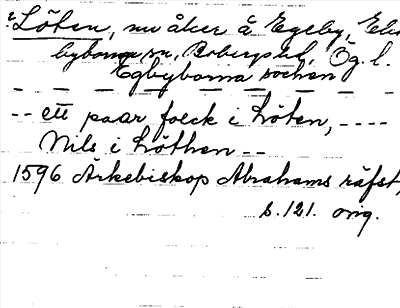 ? Löten, nu åker å Egeby, Ek
byborna sn, Bobergs hd, Ög. l.
Egbyborna sochen
-- ett paar folck i Löten, ----
Nils i Löthen --
1596 Ärkebiskop Abrahams räfst,
s. 121. orig.